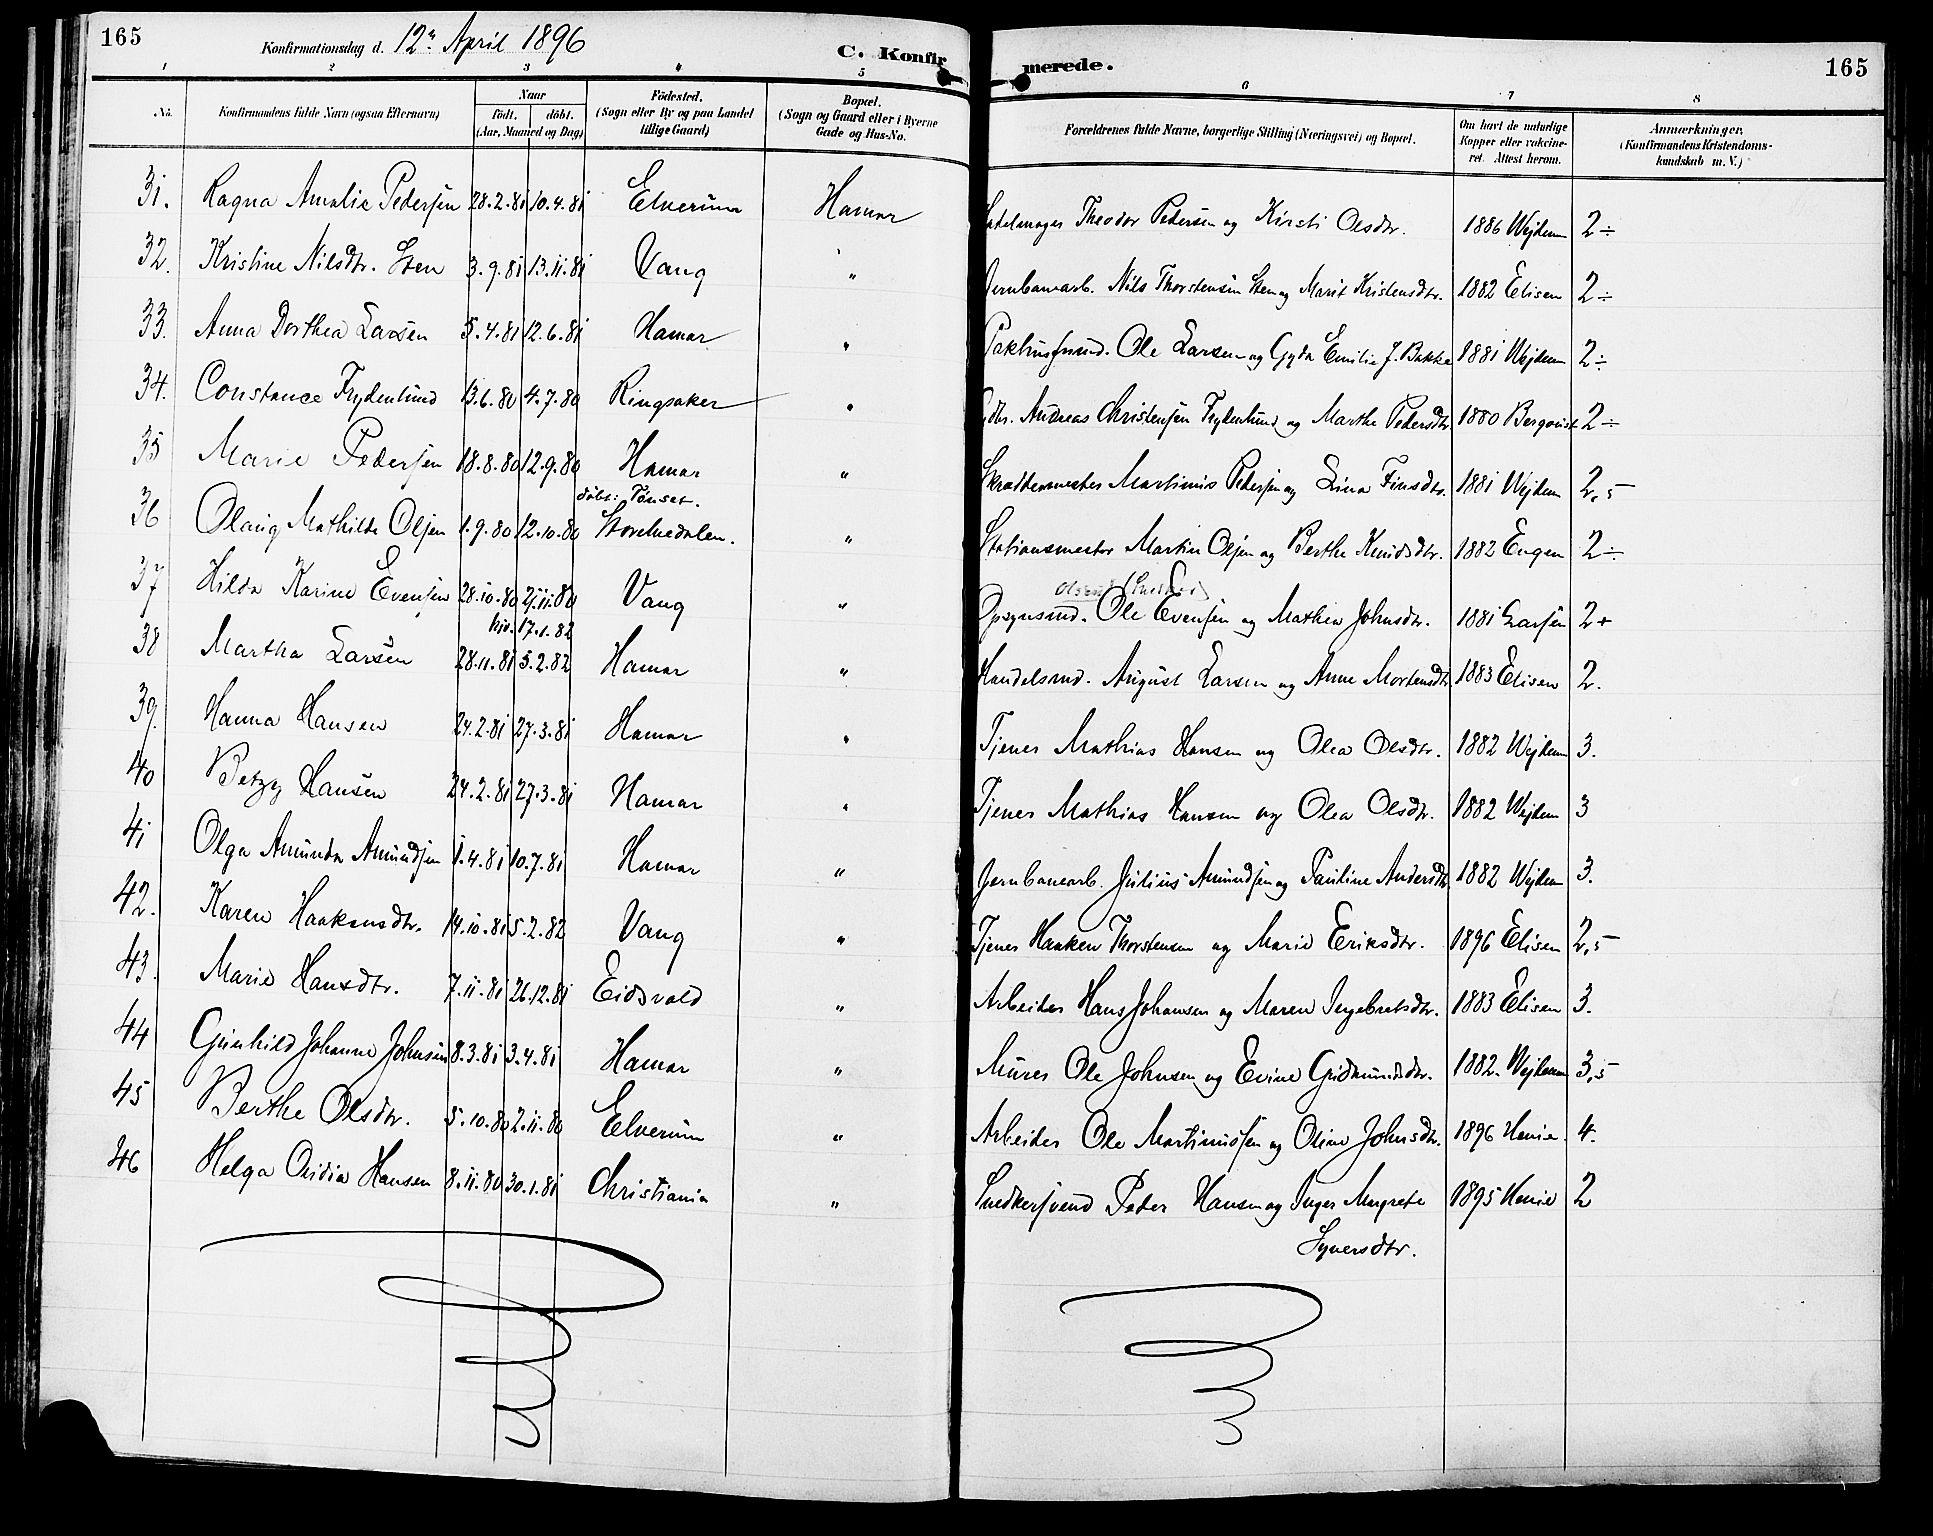 165
Konfirmationsdag d. 12te April 1896
C. Konfirmerede.
165
1 2 3 4 5 6 7 8
No.
Konfirmandens fulde Navn (ogsaa Efternavn)
Naar
födt. döbt.
(Aar, Maaned og Dag)
Födested.
(Sogn eller By og paa Landet
tillige Gaard)
Bopæl.
(Sogn og Gaard eller i Byerne
Gade og Hus-No.
Forældrenes fulde Navne, borgerlige Stilling (Næringsvei) og Bopæl.
Om havt de naturlige
Kopper eller vakcine-
ret. Attest herom.
Anmærkninger,
(Konfirmandens Kristendoms-
kundskab m. V.)
31. Ragna Amalie Pedersen 28.2.81 10.4.81 Elverum Hamar Theodor Pedersen og Kirsti Olsdtr. 1886 Wejdem 2÷
32. Kristine Nilsdtr. Sten 3.9.81 13.11.81 Vang " Jernbanearb. Nils Thorstensen Sten og Marit Kristensdtr. 1882 Elisen 2÷
33. Anna Dorthea Larsen 5.4.81 12.6.81 Hamar " Pakhusformd. Ole Larsen og Gyda Emilie J. Bakke 1881 Wejdem 2÷
34. Constance Frydenlund 13.6.80 4.7.80 Ringsaker " Andreas Christensen Frydenlund og Marthe Pedersdtr. 1880 Berqvist 2÷
35 Marie Pedersen 18.8.80 12.9.80 Hamar " Skræddermester Martinus Pedersen og Lina Finsdtr. 1881 Wejdem 2,5
36 Olaug Mathilde Olsen 1.9.80 12.10.80 döbt: Tönset. Storelvedalen. " Stationsmester Martin Olsen og Berthe Knudsdtr. 1882 Engen 2÷
37 Hilda Karine Evensen 28.10.80 21.11.80 Vang " Opsynsmd. Ole Evensen og Mathea Johnsdtr. 1881 Larsen 2+
38 Martha Larsen 28.11.81 hjd. 17.1.82 5.2.82 Hamar " Handelsmd. August Larsen og Anne Mortensdtr. 1883 Elisen 2.
39. Hanna Hansen 24.2.81 27.3.81 Hamar " Tjener Mathias Hansen og Olea Olsdtr. 1882 Wejdem 3.
40 Betzy Hansen 24.2.81 27.3.81 Hamar " Tjener Mathias Hansen og Olea Olsdtr. 1882 Wejdem 3
41 Olga Amunda Amundsen 1.4.81 10.7.81 Hamar " Jernbanearb. Julius Amundsen og Pauline Andersdtr. 1882 Wejdem 3.
42. Karen Haakensdtr. 14.10.81 5.2.82 Vang " Tjener Haaken Thorstensen og Marie Eriksdtr. 1896 Elisen 2,5
43. Marie Hansdtr. 7.11.81 26.12.81 Eidsvold " Arbeider Hans Johansen og Maren Ingebretsdtr. 1883 Elisen 3.
44 Gunhild Johanne Johnsen 8.3.81 3.4.81 Hamar " Murer Ole Johnsen og Evine Gudmundsdtr. 1882. Wejdem 3,5
45 Berthe Olsdtr. 5.10.80 2.11.80 Elverum " Arbeider Ole Martinussen og Oline Johnsdtr. 1896 Henie. 4.
46 Helga Ovidia Hansen 8.11.80 30.1.81 Christiania " Snedkersvend Peder Hansen og Inger Margrete
Syversdtr. 1895 Henie 2